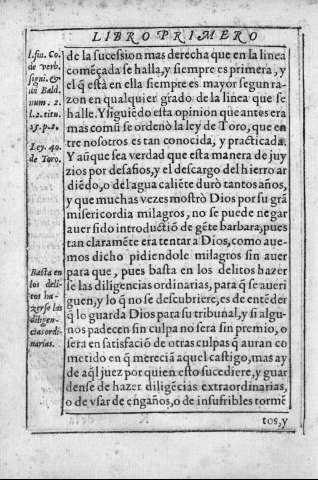 LIBRO PRIMERO
l. siu. Co.
de verb.
signi. &
ibi Bald.
num. 2.
l. 2. titu.
15. p. 2.
Ley. 40.
de Toro.
Basta en
los deli-
tos ha-
zerse las
diligen-
cias ordi-
narias.
de la sucession mas derecha que en la linea
comẽçada se halla, y siempre es primera, y
el q̃ està en ella siempre es mayor segun ra-
zon en qualquier grado de la linea que se
halle. Y siguiẽdo esta opinión que antes era
mas comũ se ordenò la ley de Toro, que en
tre nosotros es tan conocida, y practicada.
Y aũque sea verdad que esta manera de juy
zios por desafios, y el descargo del hierro ar
diẽdo, o del agua caliẽte durò tantos años,
y que muchas vezes mostrò Dios por su grã
misericordia milagros, no se puede negar
auer sido introductiõ de gẽte barbara, pues
tan claramẽte era tentar a Dios, como aue-
mos dicho pidiendole milagros sin auer
para que, pues basta en los delitos hazer
se las diligencias ordinarias, para q̃ se aueri
guen, y lo q̃ no se descubriere, es de entẽder
q̃ lo guarda Dios para su tribunal, y si algu-
nos padecen sin culpa no sera sin premio, o
sera en satisfaciõ de otras culpas q̃ auran co
metido en q̃ merecià aquel castigo, mas ay
de aq̃l juez por quien esto sucediere, y guar
dense de hazer diligẽcias extraordinarias,
o de vsar de engaños, o de insufribles tormẽ
tos, y